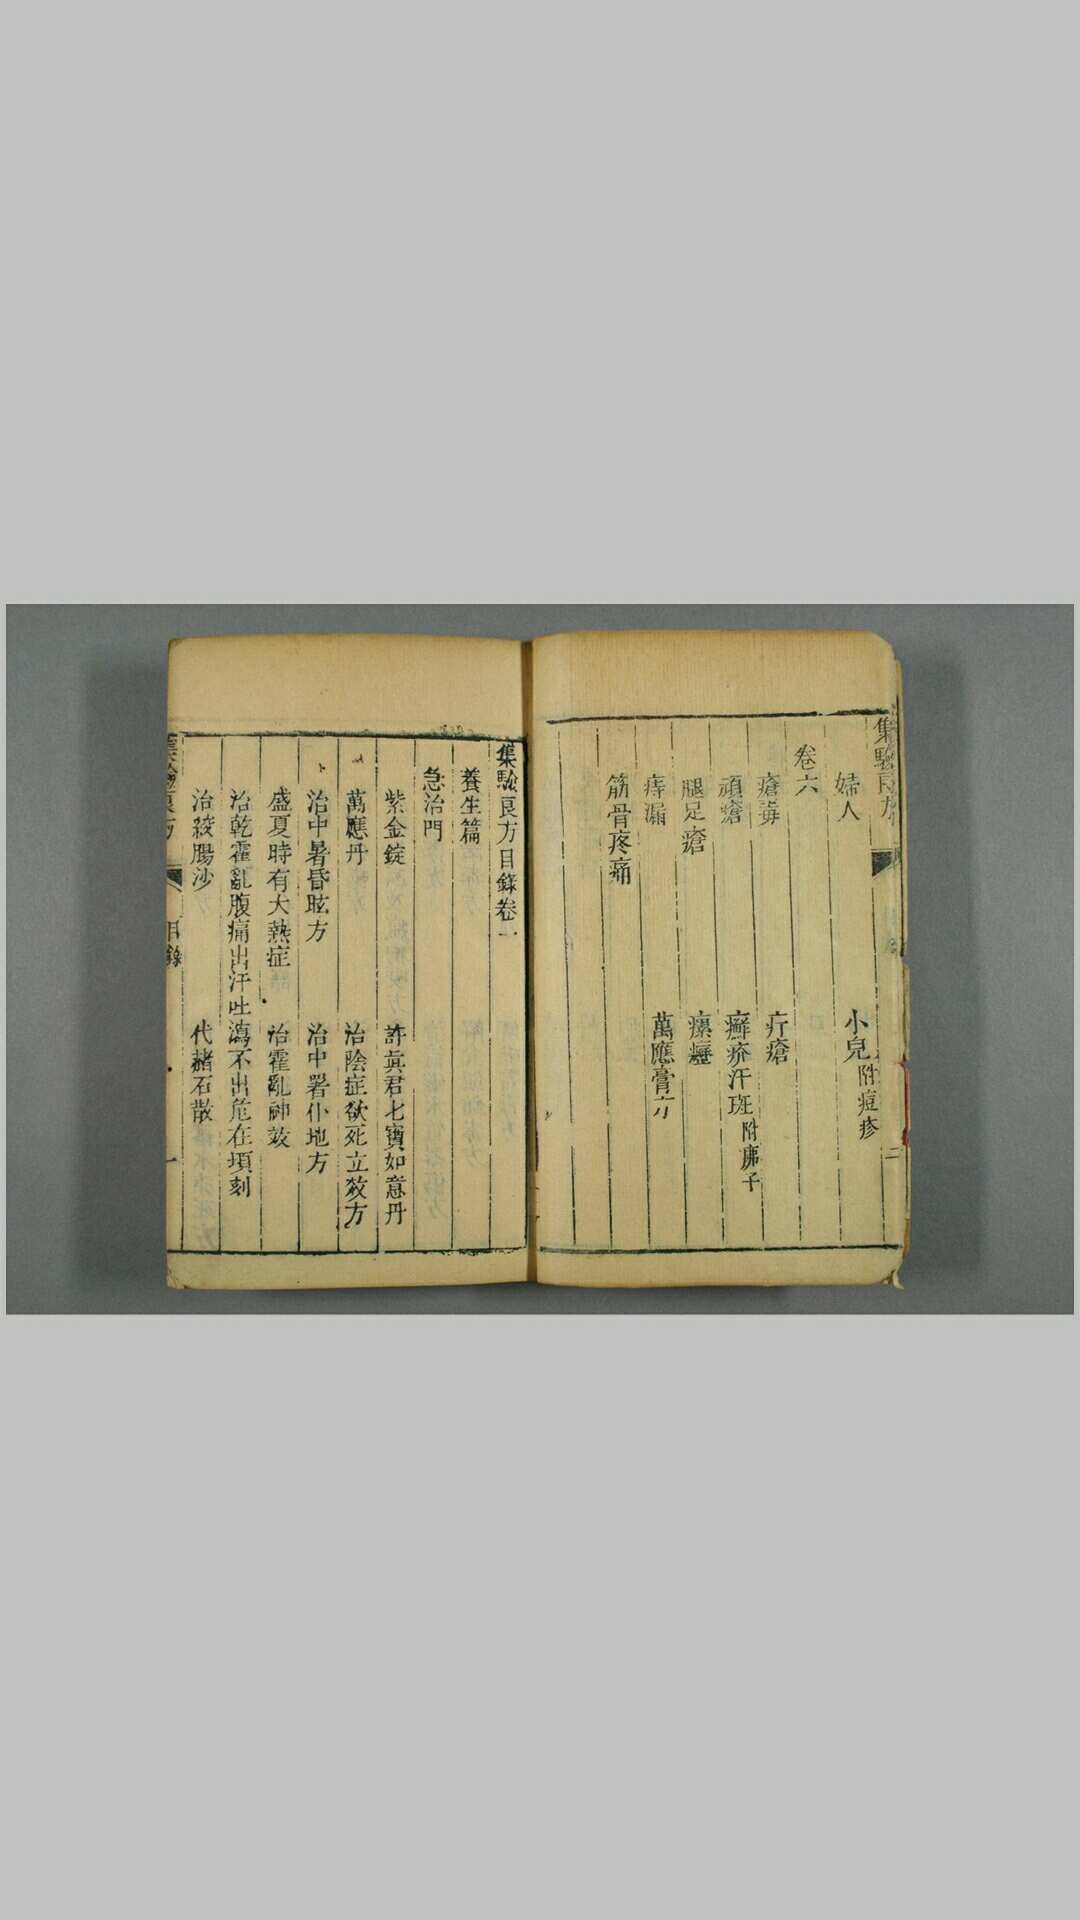 集驗良方
婦人 小兒附痘疹
卷六
瘡毒 疔瘡
頑瘡 癬疥汗斑附痱子
腿足瘡 瘰癧
痔漏 萬應膏方
筋骨疼痛
集驗良方目錄卷一
養生篇
急治門
紫金錠 許真君七寶如意丹
萬應丹 治陰症欲死立效方
治中暑昏眩方 治中署仆地方
盛夏時有大熱症 治霍亂神效
治乾霍亂腹痛出汗吐瀉不出危在頃刻
治絞腸沙 代赭石散
集驗良方 目錄 一